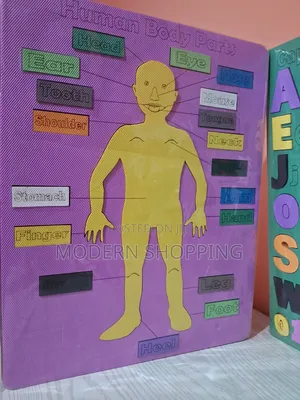 Human Body Parts
Head
Eye
Ear
Nose
Tooth
Tongue
Shoulder
Neck
Stomach
Hand
Finger
Leg
Foot
Heel
POSTED ON JI
MODERN SHOPPING
A
E
J
O
S
W